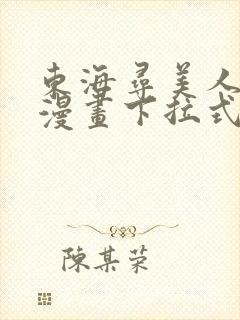 東海尋美人
漫畫下拉式
陳某荣